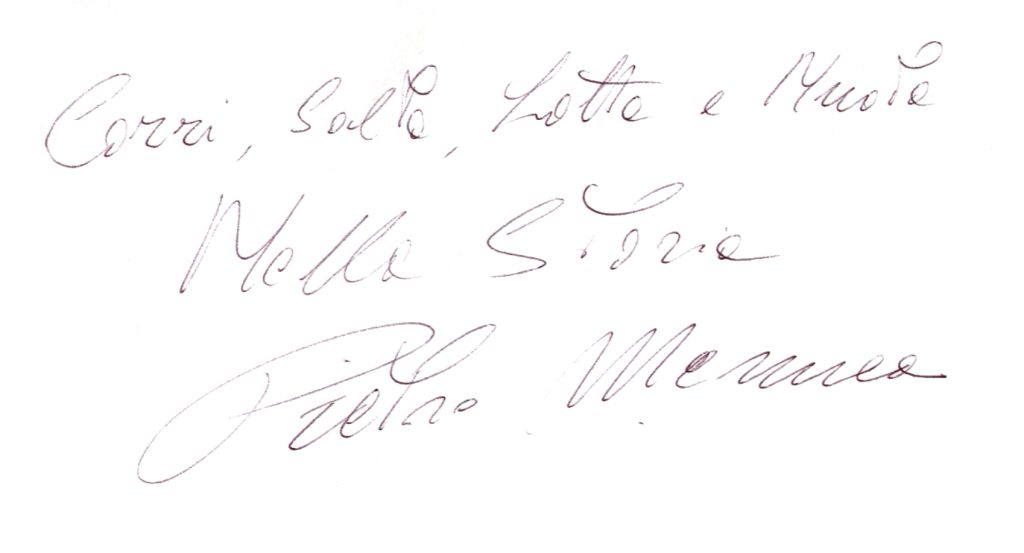 Corri, Salta, Lotta e Nuota
Nella Storia
Pietro Mennea